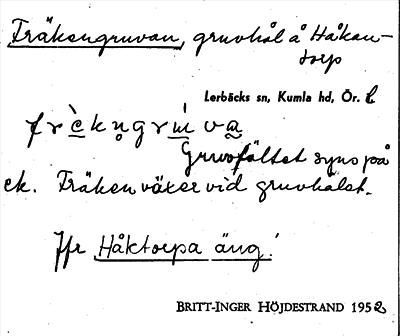 Fräkengruvan, gruvhål å Håkan-
torp
Lerbäcks sn, Kumla hd, Ör. l
Gruvfältet syns på
ek. Fräken växer vid gruvhålet.
Jfr Håktorpa äng!
BRITT-INGER HÖJDESTRAND 1952